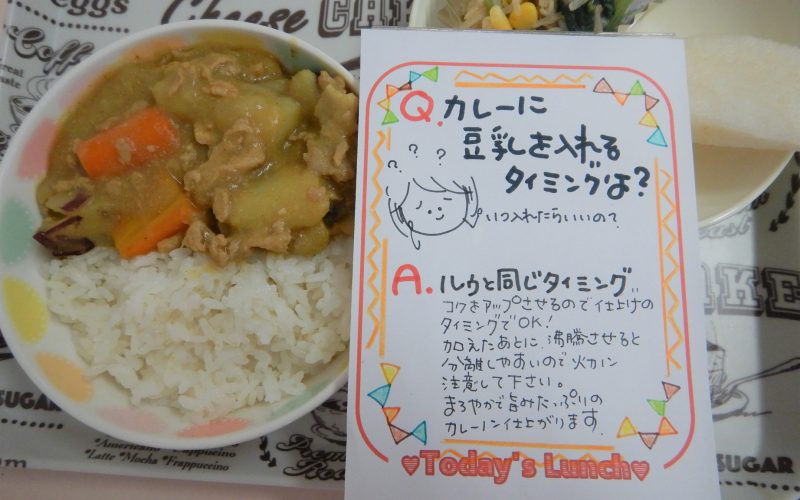 eggs
Cheese
CAKE
Coffee
Q.カレーに
豆乳を入れる
タイミングは?
? ? ? ?
いつ入れたらいいの?
A.ルウと同じタイミング
コクをアップさせるので仕上げの
タイミングでOK!
加えたあとに、沸騰させると
分離しやすいので火加減
注意して下さい。
まろやかで旨みたっぷりの
カレーに仕上がります。
♥Today's Lunch♥
SUGAR
SUGAR
Americano * Cappuccino
*Latte *Mocha *Frappuccino